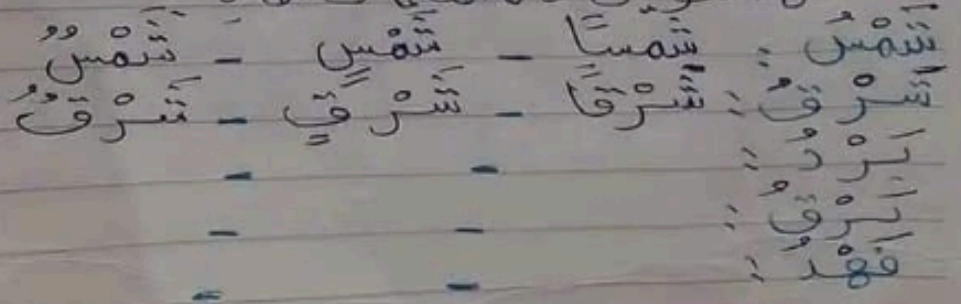 شَمْسُ : شَمْسًا - شَمْسٍ - شَمْسٌ
شَرْقُ : شَرْقًا - شَرْقٍ - شَرْقٌ
بَرْدُ : - -
بَرْقُ : - -
فَهْدُ : - -